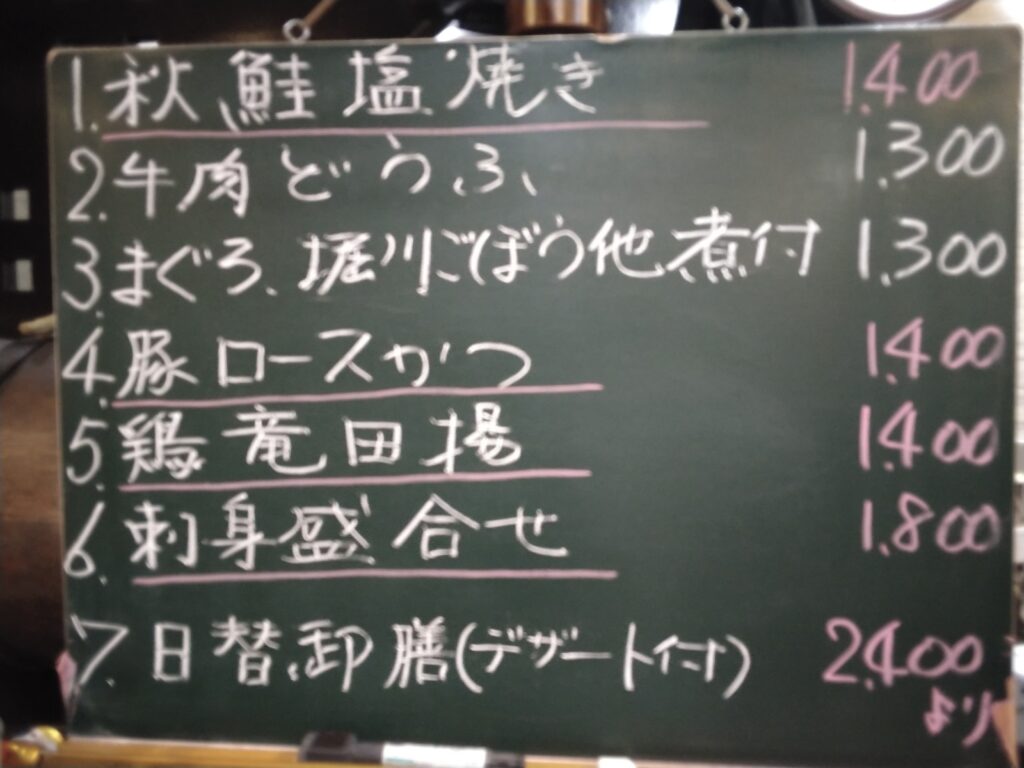 1.秋鮭塩焼き 1.400
2.牛肉どうふ 1.300
3.まぐろ、堀川ごぼう他煮付 1.300
4.豚ロースかつ 1.400
5.鶏竜田揚 1.400
6.刺身盛合せ 1.800
7.日替御膳(デザート付) 2.400
より